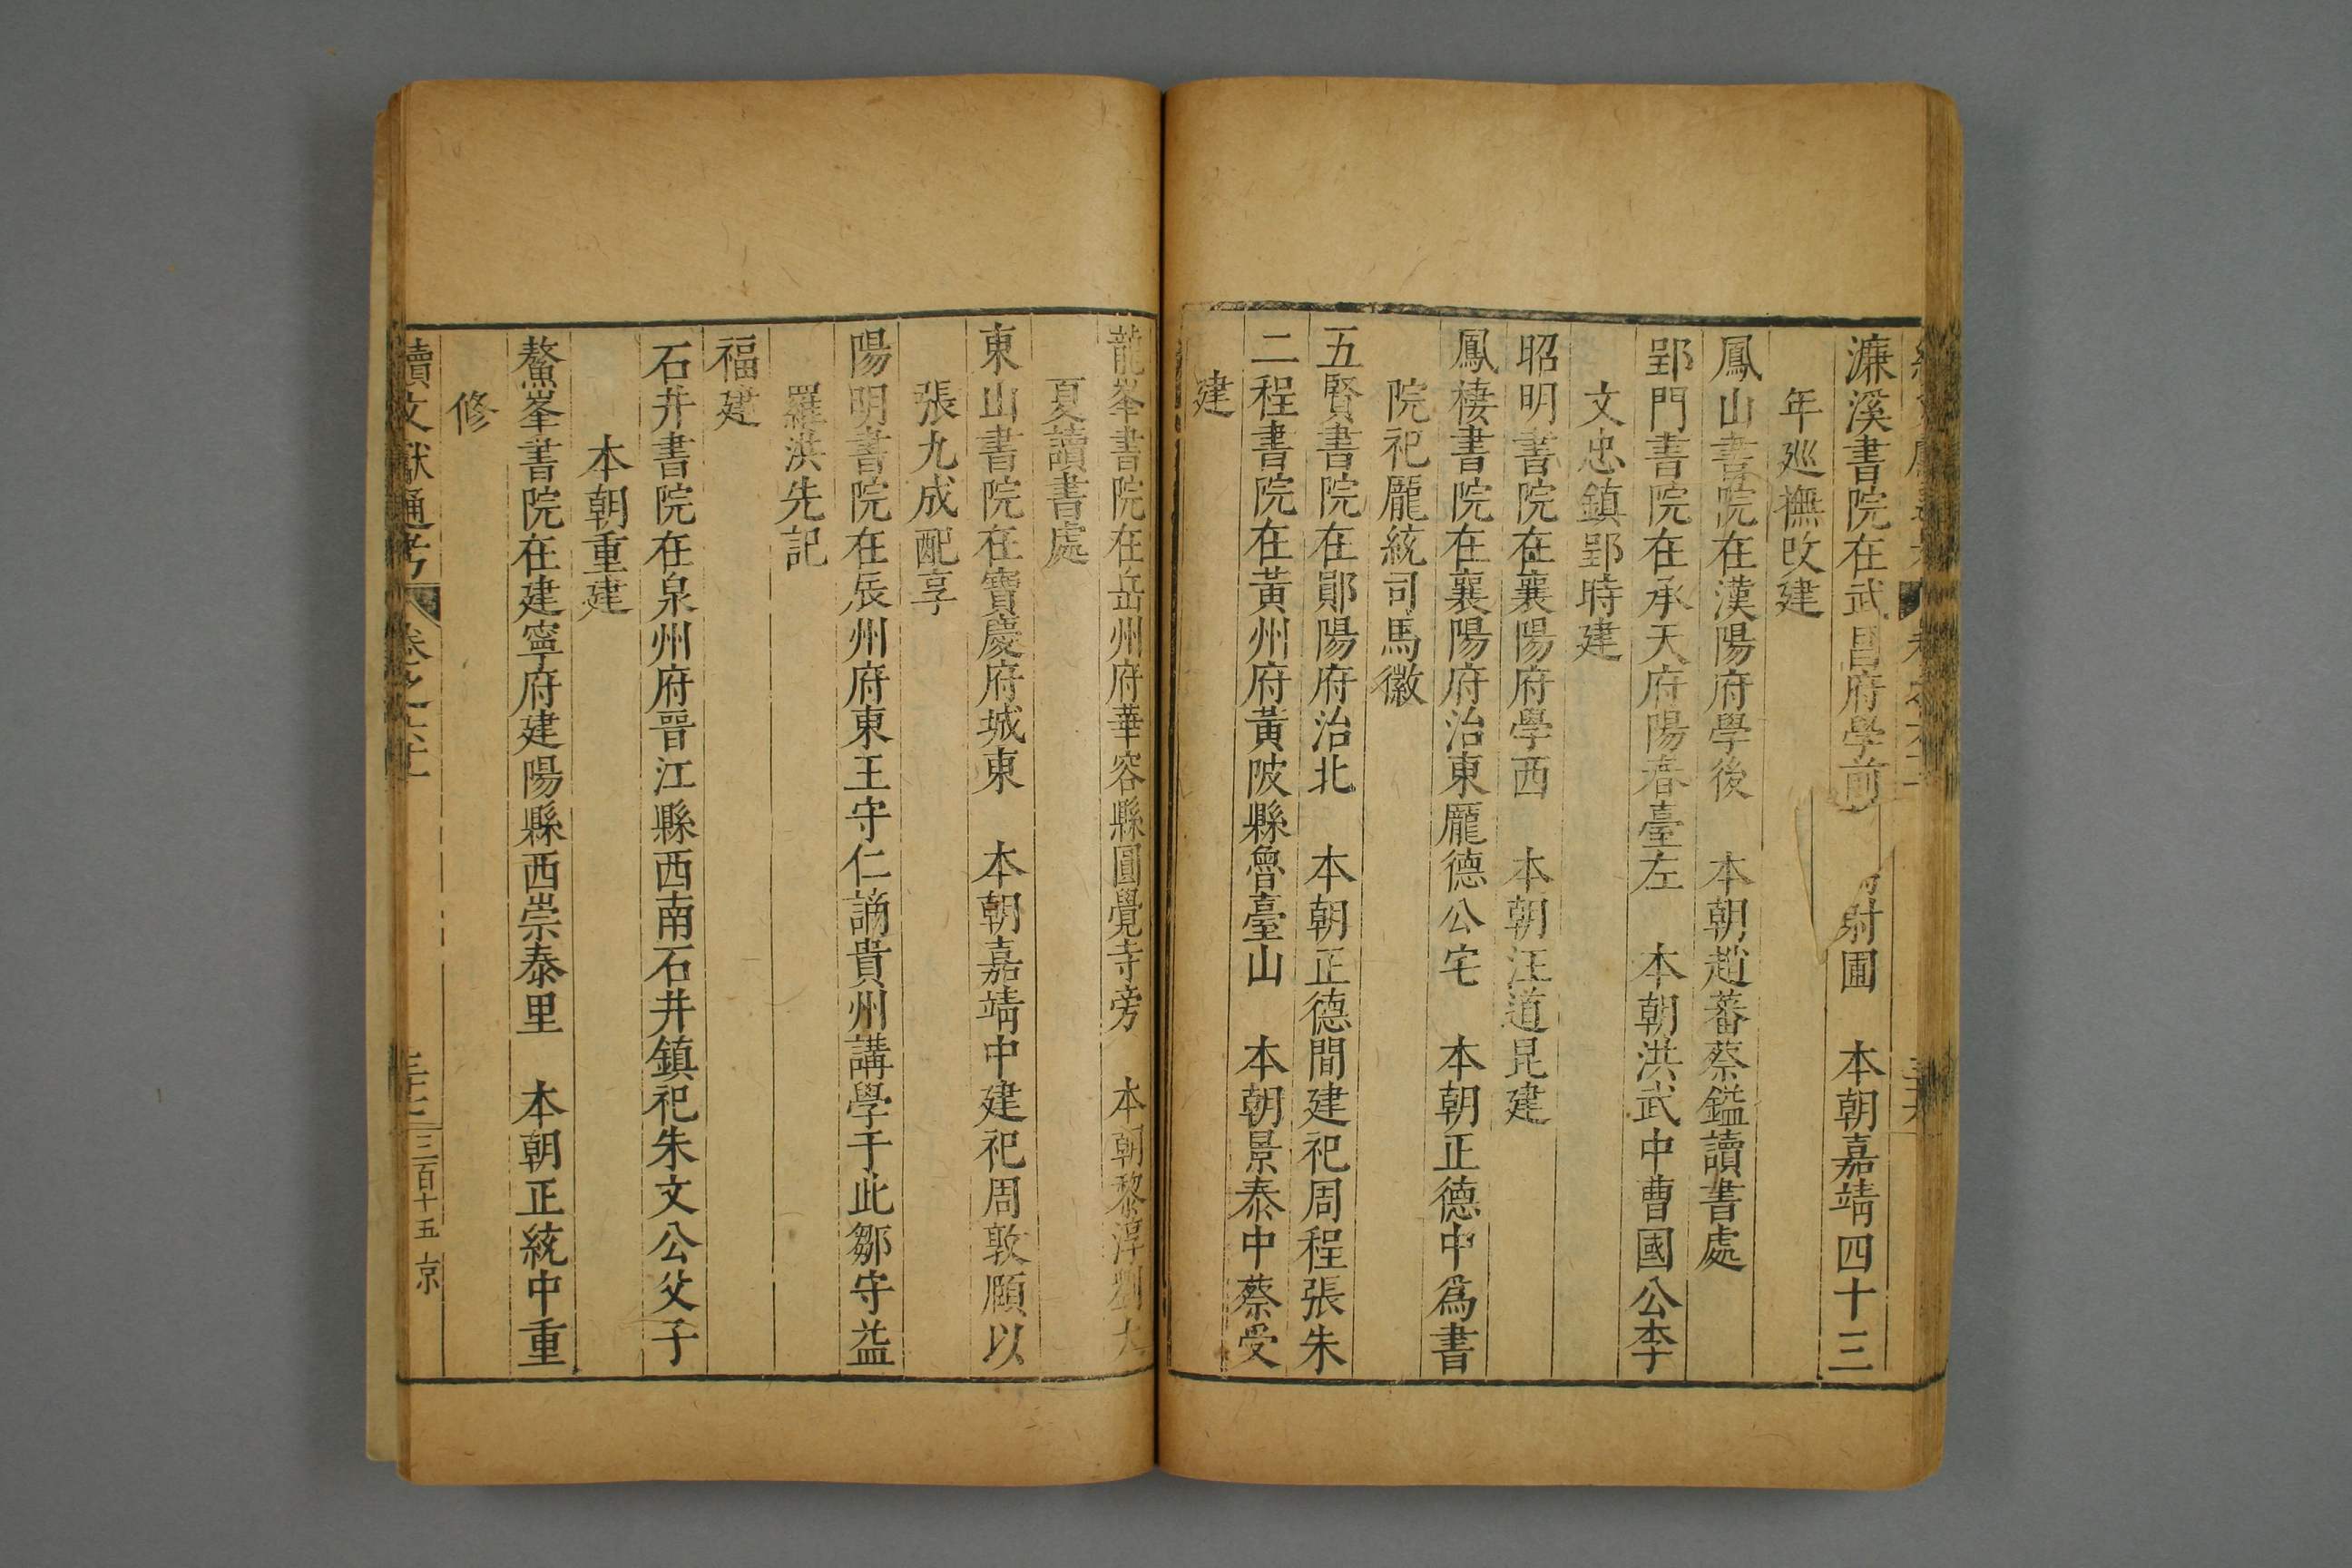 濂溪書院在武昌府學前射圃　本朝嘉靖四十三
年廵撫改建
鳳山書院在漢陽府學後　本朝趙蕃蔡鎰讀書處
郢門書院在承天府陽春臺左　本朝洪武中曹國公李
文忠鎮郢時建
昭明書院在襄陽府學西　本朝汪道昆建
鳳棲書院在襄陽府治東龎德公宅　本朝正德中爲書
院祀龎統司馬徽
五賢書院在鄖陽府治北　本朝正德間建祀周程張朱
二程書院在黃州府黃陂縣魯臺山　本朝景泰中蔡受
建
龍峯書院在岳州府華容縣圓覺寺旁　本朝黎淳劉大
夏讀書處
東山書院在寶慶府城東　本朝嘉靖中建祀周敦頤以
張九成配享
陽明書院在辰州府東王守仁謫貴州講學于此鄒守益
羅洪先記
福建
石井書院在泉州府晉江縣西南石井鎮祀朱文公父子
本朝重建
鰲峯書院在建寧府建陽縣西崇泰里　本朝正統中重
修
續文獻通考　卷之六十一　三百十五　京